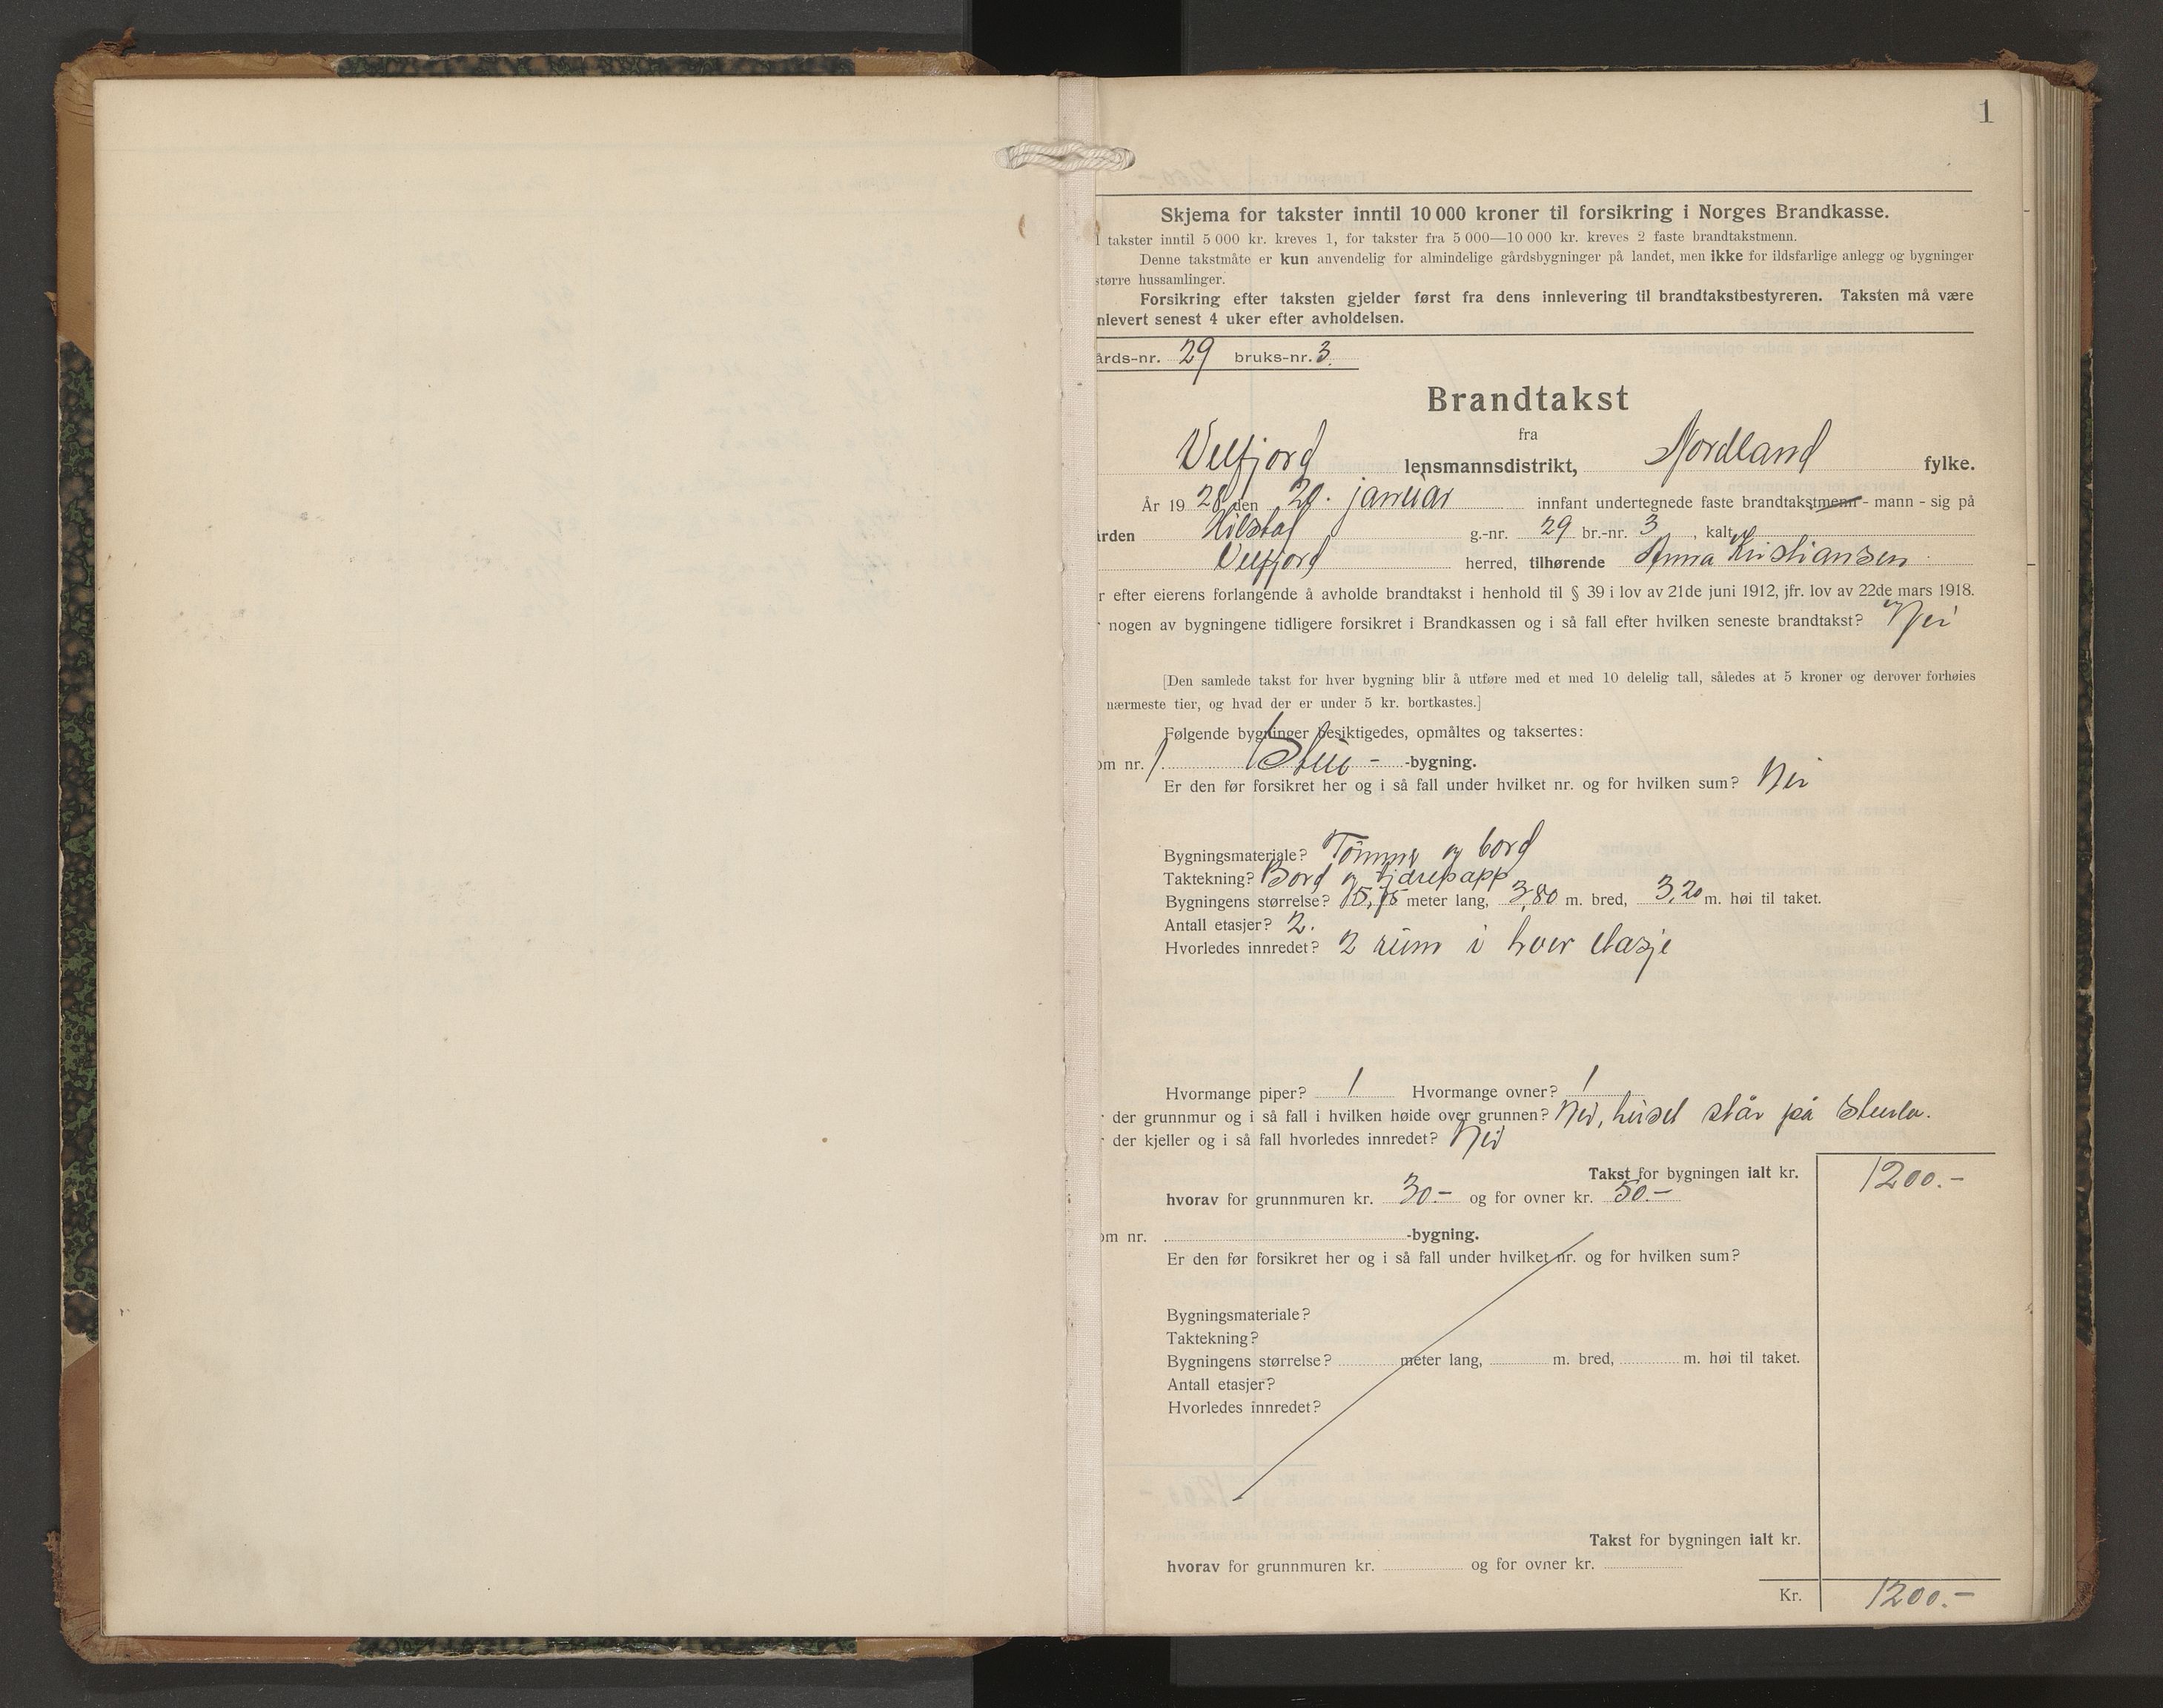 1
Skjema for takster inntil 10 000 kroner til forsikring i Norges Brandkasse.
takster inntil 5 000 kr. kreves 1, for takster fra 5 000—10 000 kr. kreves 2 faste brandtakstmenn.
Denne takstmåte er kun anvendelig for almindelige gårdsbygninger på landet, men ikke for ildsfarlige anlegg og bygninger
større hussamlinger.
Forsikring efter taksten gjelder først fra dens innlevering til brandtakstbestyreren. Taksten må være
nlevert senest 4 uker efter avholdelsen.
årds-nr. 29 bruks-nr. 3.
Brandtakst
fra
Velfjord lensmannsdistrikt, Nordland fylke.
År 1928 den 20. januar innfant undertegnede faste brandtakstmenn - mann - sig på
rden Hilstad g.-nr. 29 br.-nr. 3, kalt
Velfjord herred, tilhørende Anna Kristiansen
r efter eierens forlangende å avholde brandtakst i henhold til § 39 i lov av 21de juni 1912, jfr. lov av 22de mars 1918.
nogen av bygningene tidligere forsikret i Brandkassen og i så fall efter hvilken seneste brandtakst? Nei
[Den samlede takst for hver bygning blir å utføre med et med 10 delelig tall, således at 5 kroner og derover forhøies
nærmeste tier, og hvad der er under 5 kr. bortkastes.]
Følgende bygninger besiktigedes, opmåltes og taksertes:
om nr. 1 Stue - -bygning.
Er den før forsikret her og i så fall under hvilket nr. og for hvilken sum? Nei
Bygningsmateriale? Tømmer og bord
Taktekning? Bord og tjærepapp
Bygningens størrelse? 5,75 meter lang, 3,80 m. bred, 3,20 m. høi til taket.
Antall etasjer? 2.
Hvorledes innredet? 2 rum i hver etasje
Hvormange piper? 1 Hvormange ovner? 1
der grunnmur og i så fall i hvilken høide over grunnen? Nei, huset står på
der kjeller og i så fall hvorledes innredet? Nei
Takst for bygningen ialt kr. 1200.-
hvorav for grunnmuren kr. 30.- og for ovner kr. 50.-
om nr. -bygning.
Er den før forsikret her og i så fall under hvilket nr. og for hvilken sum?
Bygningsmateriale?
Taktekning?
Bygningens størrelse? meter lang, m. bred, m. høi til taket.
Antall etasjer?
Hvorledes innredet?
Takst for bygningen ialt kr.
hvorav for grunnmuren kr. og for ovner kr.
Kr. 1200.-